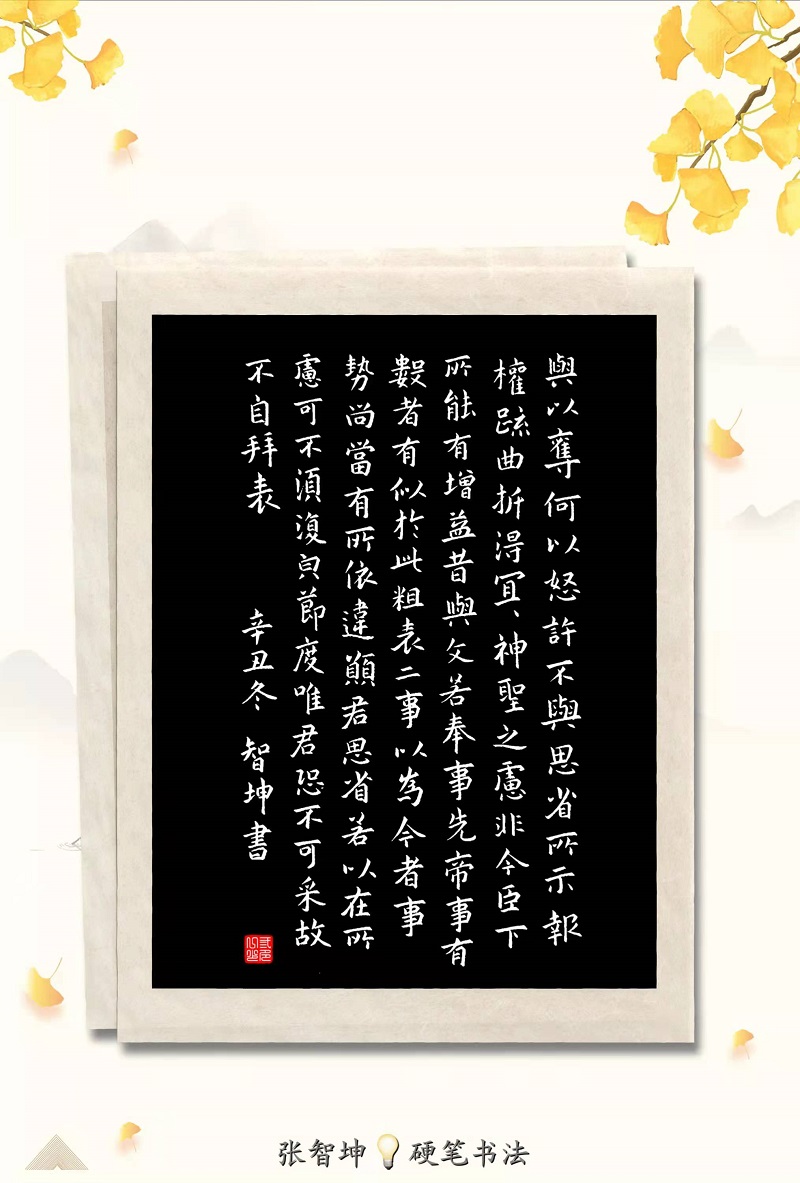 與以奪何以怒許不與思省所示報
權踈曲折得冝、神聖之慮非今臣下
所能有增益昔與文若奉事先帝事有
數者有似於此粗表二事以為今者事
勢尚當有所依違願君思省若以在所
慮可不須復皃節度唯君恐不可采故
不自拜表 辛丑冬 智坤書
张智坤 硬笔书法